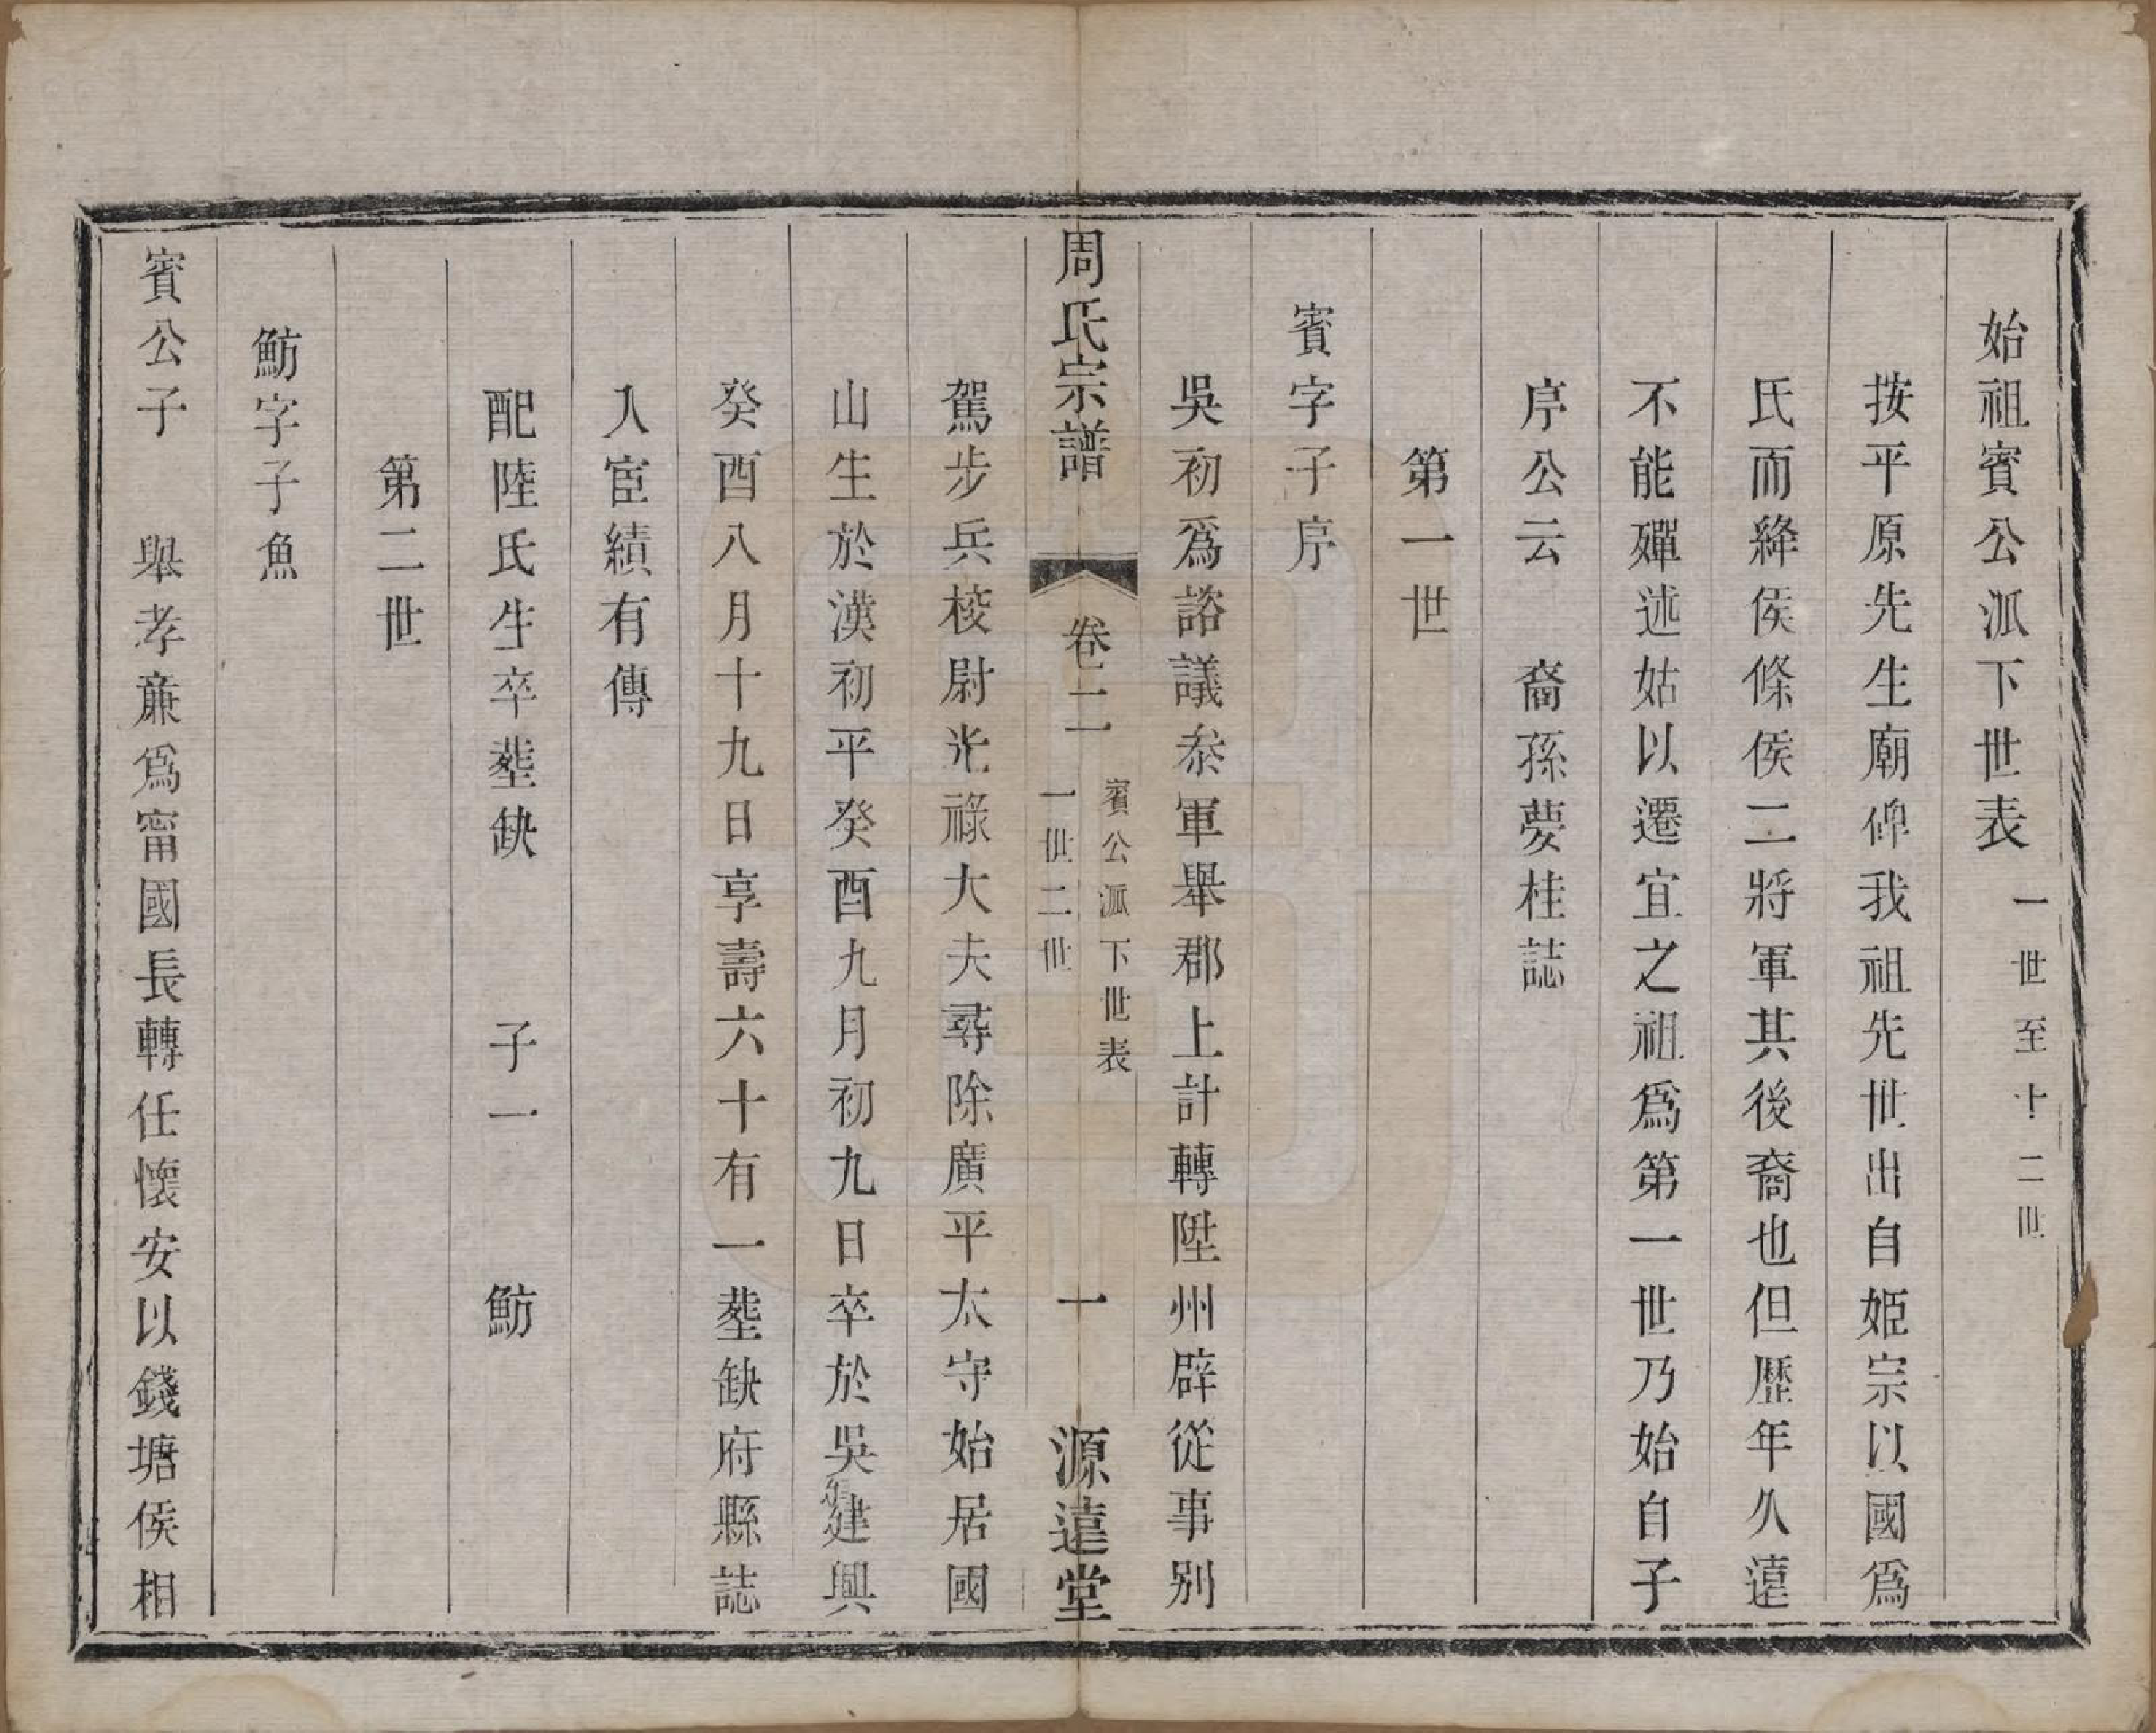 始祖賓公派下世表 一世至十二世
按平原先生廟碑我祖先世出自姬宗以國爲
氏而絳侯條侯二將軍其後裔也但歷年久遠
不能殫述姑以遷宜之祖爲第一世乃始自子
序公云 裔孫夢桂誌
第一世
賓字子序
吳初爲諮議叅軍舉郡上計轉陞州辟從事別
周氏宗譜 卷二 賓公派下世表 一世二世 一 源遠堂
駕步兵校尉光祿大夫尋除廣平太守始居國
山生於漢初平癸酉九月初九日卒於吳建興
癸酉八月十九日享壽六十有一塟缺府縣誌
入宦績有傳
配陸氏生卒塟缺 子一 魴
第二世
魴字子魚
賓公子 舉孝亷爲甯國長轉任懷安以錢塘侯相